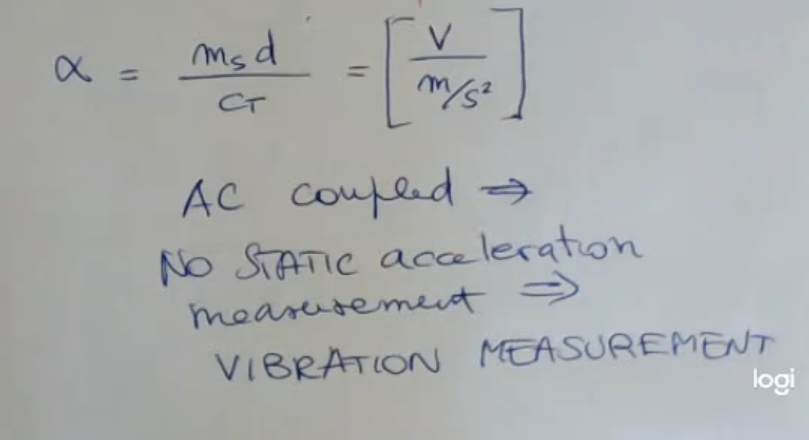 α = m_s d / C_T = [V / m/s²]
AC coupled ⇒
NO STATIC acceleration
measurement ⇒
VIBRATION MEASUREMENT
logi